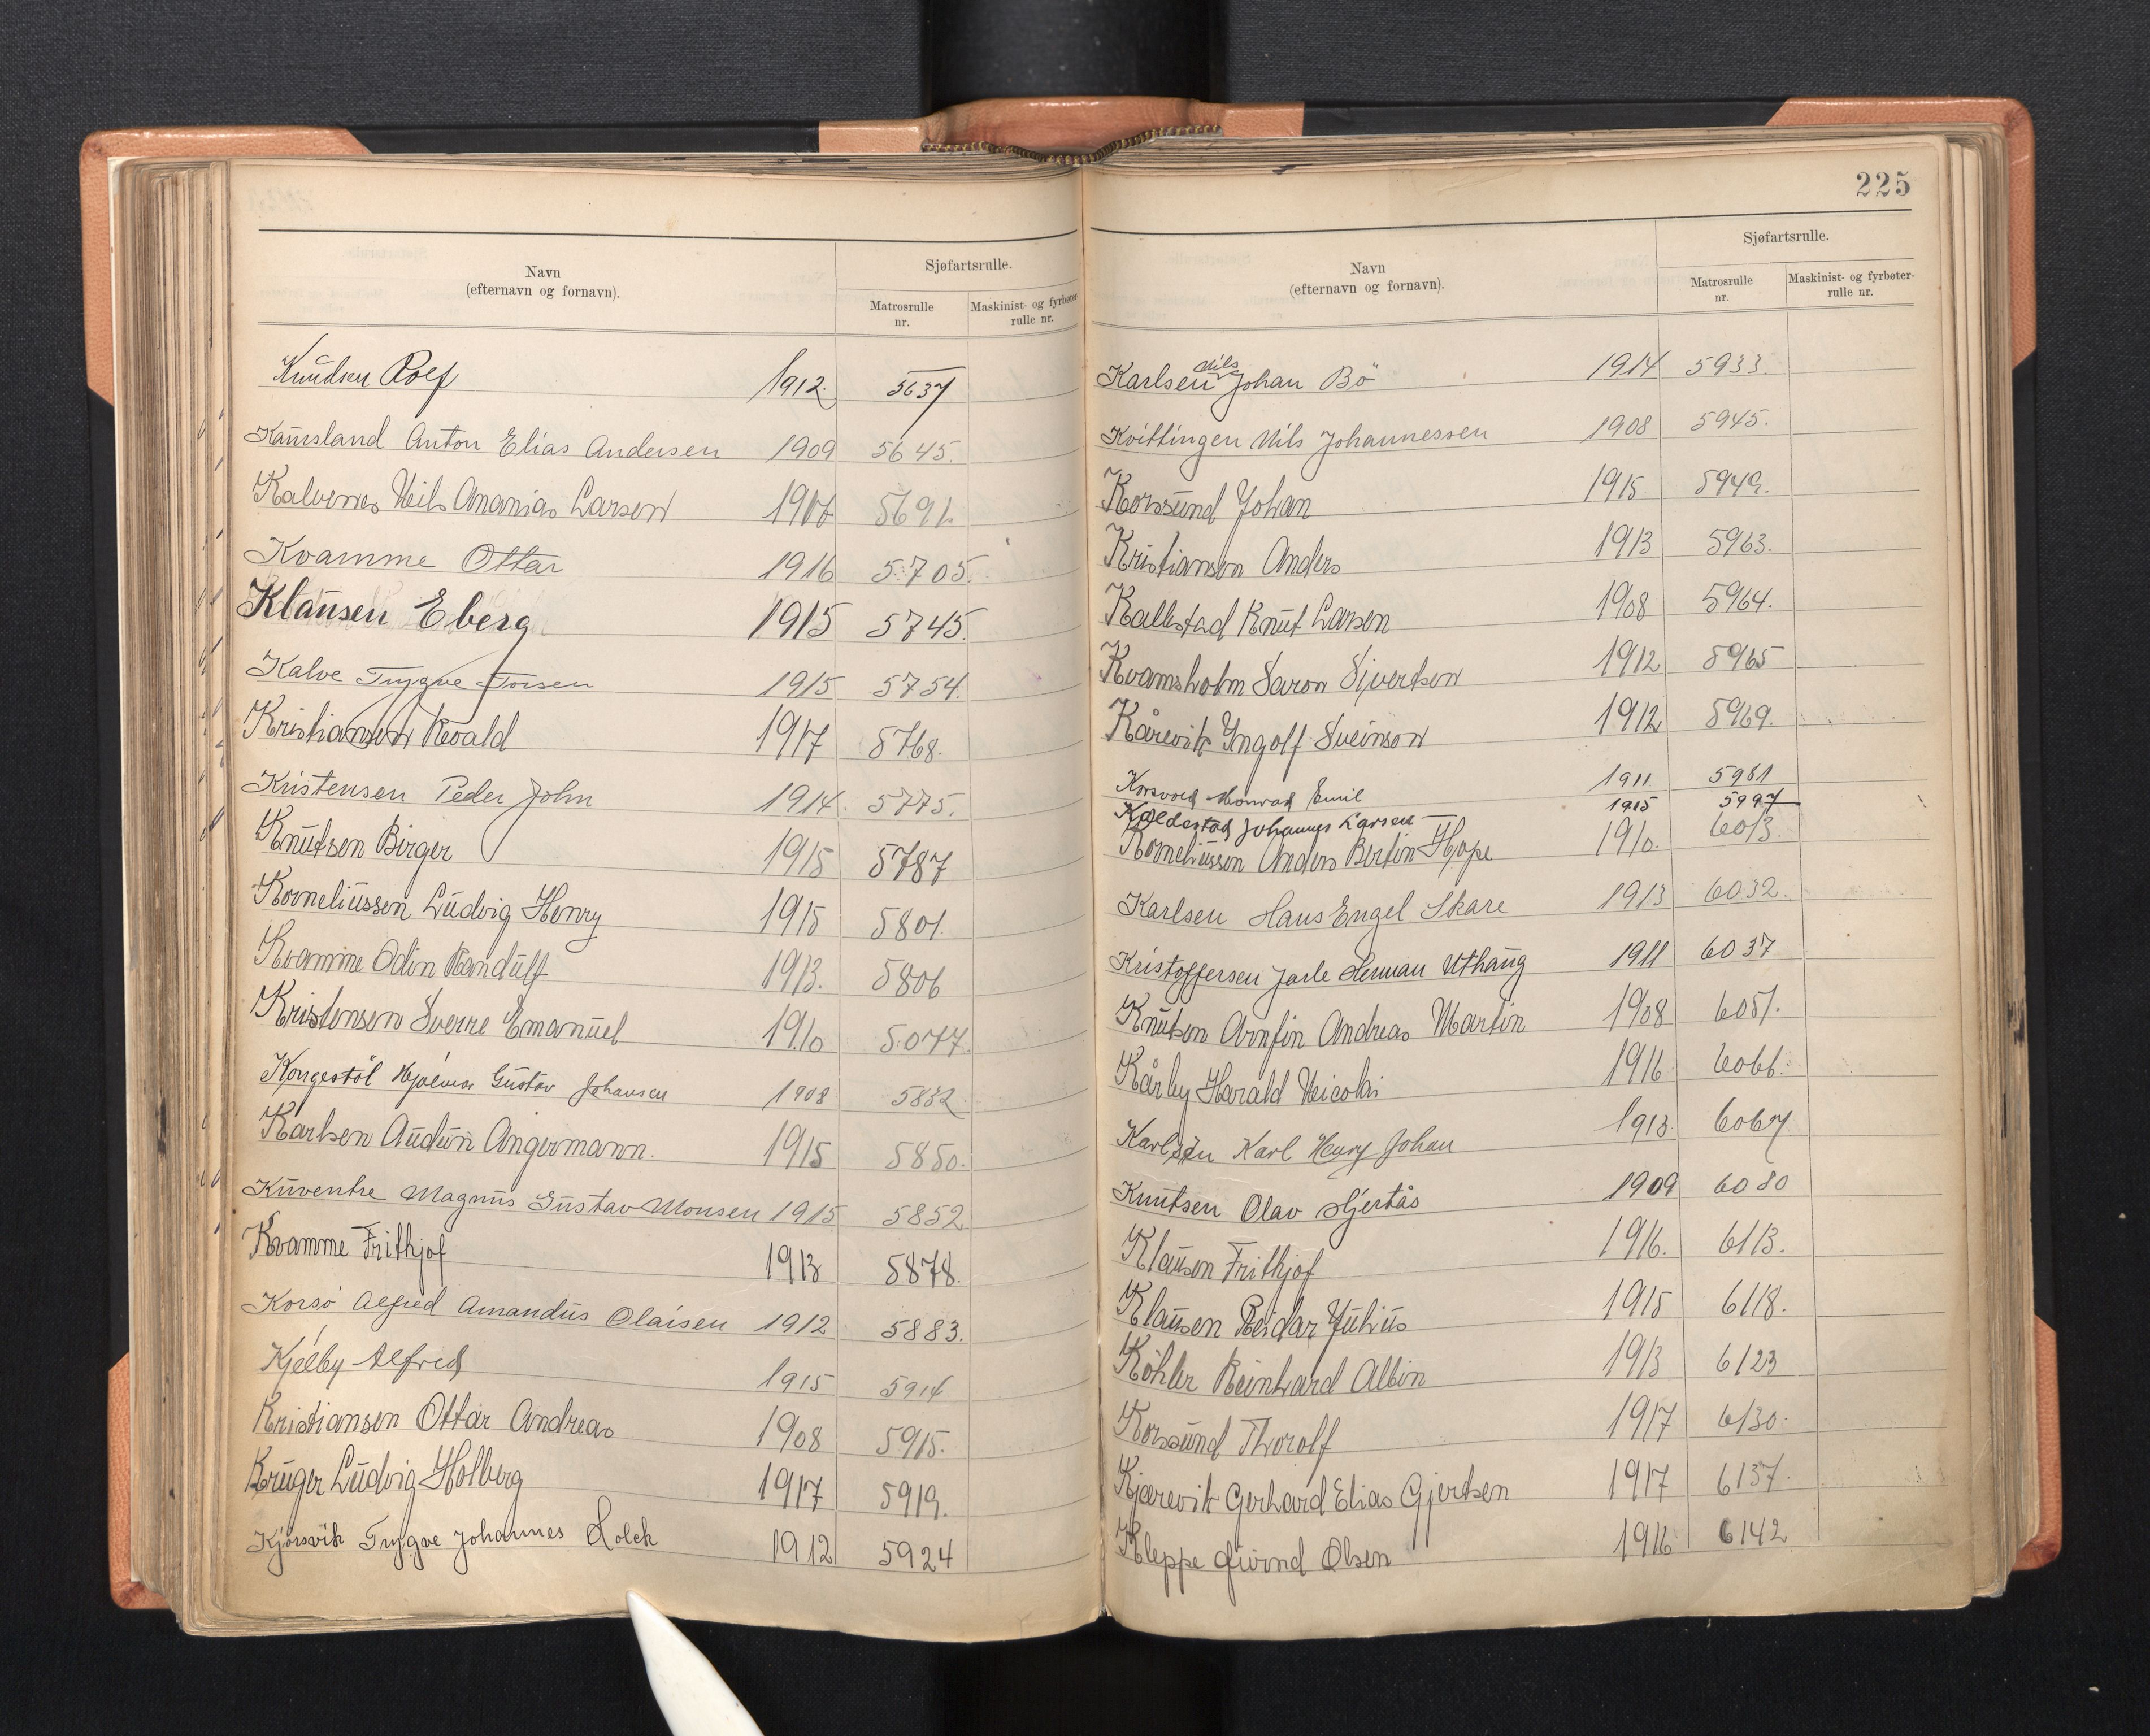 Navn
(efternavn og fornavn).
Sjøfartsrulle.
Matrosrulle
nr.
Maskinist- og fyrbøter-
rulle nr.
Knudsen Rolf 1912. 5637
Kaursland Anton Elias Andersen 1909 5645.
Kalvenes Nils Ananias Larsen 5691.
Kvamme Ottar 1916 5705.
Klausen Eberg 1915 5745.
Kalve Trygve Torsen 1915 5754.
Kristiansen Roald 1917 5768.
Kristensen Peder John 1914. 5775.
Knutsen Birger 1915 5787
Korneliussen Ludvig Henry 1915 5801.
Kvamme Odin Randulf 1913. 5806
Kristensen Sverre Emanuel 1910
Kongestøl Hjalmar Gustav Johansen 1908 5832
Karlsen Audun Angermann. 1915 5850.
Kuventre Magnus Gustav Monsen 1915 5852
Kvamme Frithjof 1913 5878.
Korsø Alfred Amandus Olaisen 1912 5883.
Kjelby Alfred 1915 5914
Kristiansen Ottar Andreas 1908 5915.
Krüger Ludvig Holberg 1917 5919.
Kjørsvik Trygve Johannes Holck 1912 5924
225
Navn
(efternavn og fornavn).
Sjøfartsrulle.
Matrosrulle
nr.
Maskinist- og fyrbøter-
rulle nr.
Karlsen Nils Johan Bø 1914 5933.
Kvittingen Nils Johannessen 1908 5945.
Korssund Johan 1915 5949.
Kristianson Anders 1913 5963.
Kallestad Knut Larsen 1908 5964.
Kvamsholm Saron Sivertsen 1912 5965
Kårevik Yngolf Sveinson 1912 5969.
Korsvold Monrad Emil 1911. 5981
Kaldestad Johannes Larsen 1915 5997
Korneliussen Anders Bertin Hope 1910. 6013.
Karlsen Hans Engel Skare 1913 6032.
Kristoffersen Jarle Herman Uthaug 1911 6037
Knutsen Arnfin Andreas Martin 1908 6051.
Kårby Harald Nicolai 1916 6066.
Karlsen Karl Henry Johan 1913 6067
Knutsen Olav Hjertås 1909 6080
Klausen Frithjof 1916. 6113.
Klausen Reidar Julius 1915 6118.
Köhler Reinhard Albin 1913 6123
Korssund Thorolf 1917 6130.
Kjærevik Gerhard Elias Gjertsen 1917 6137.
Kleppe Øivind Olsen 1916 6142